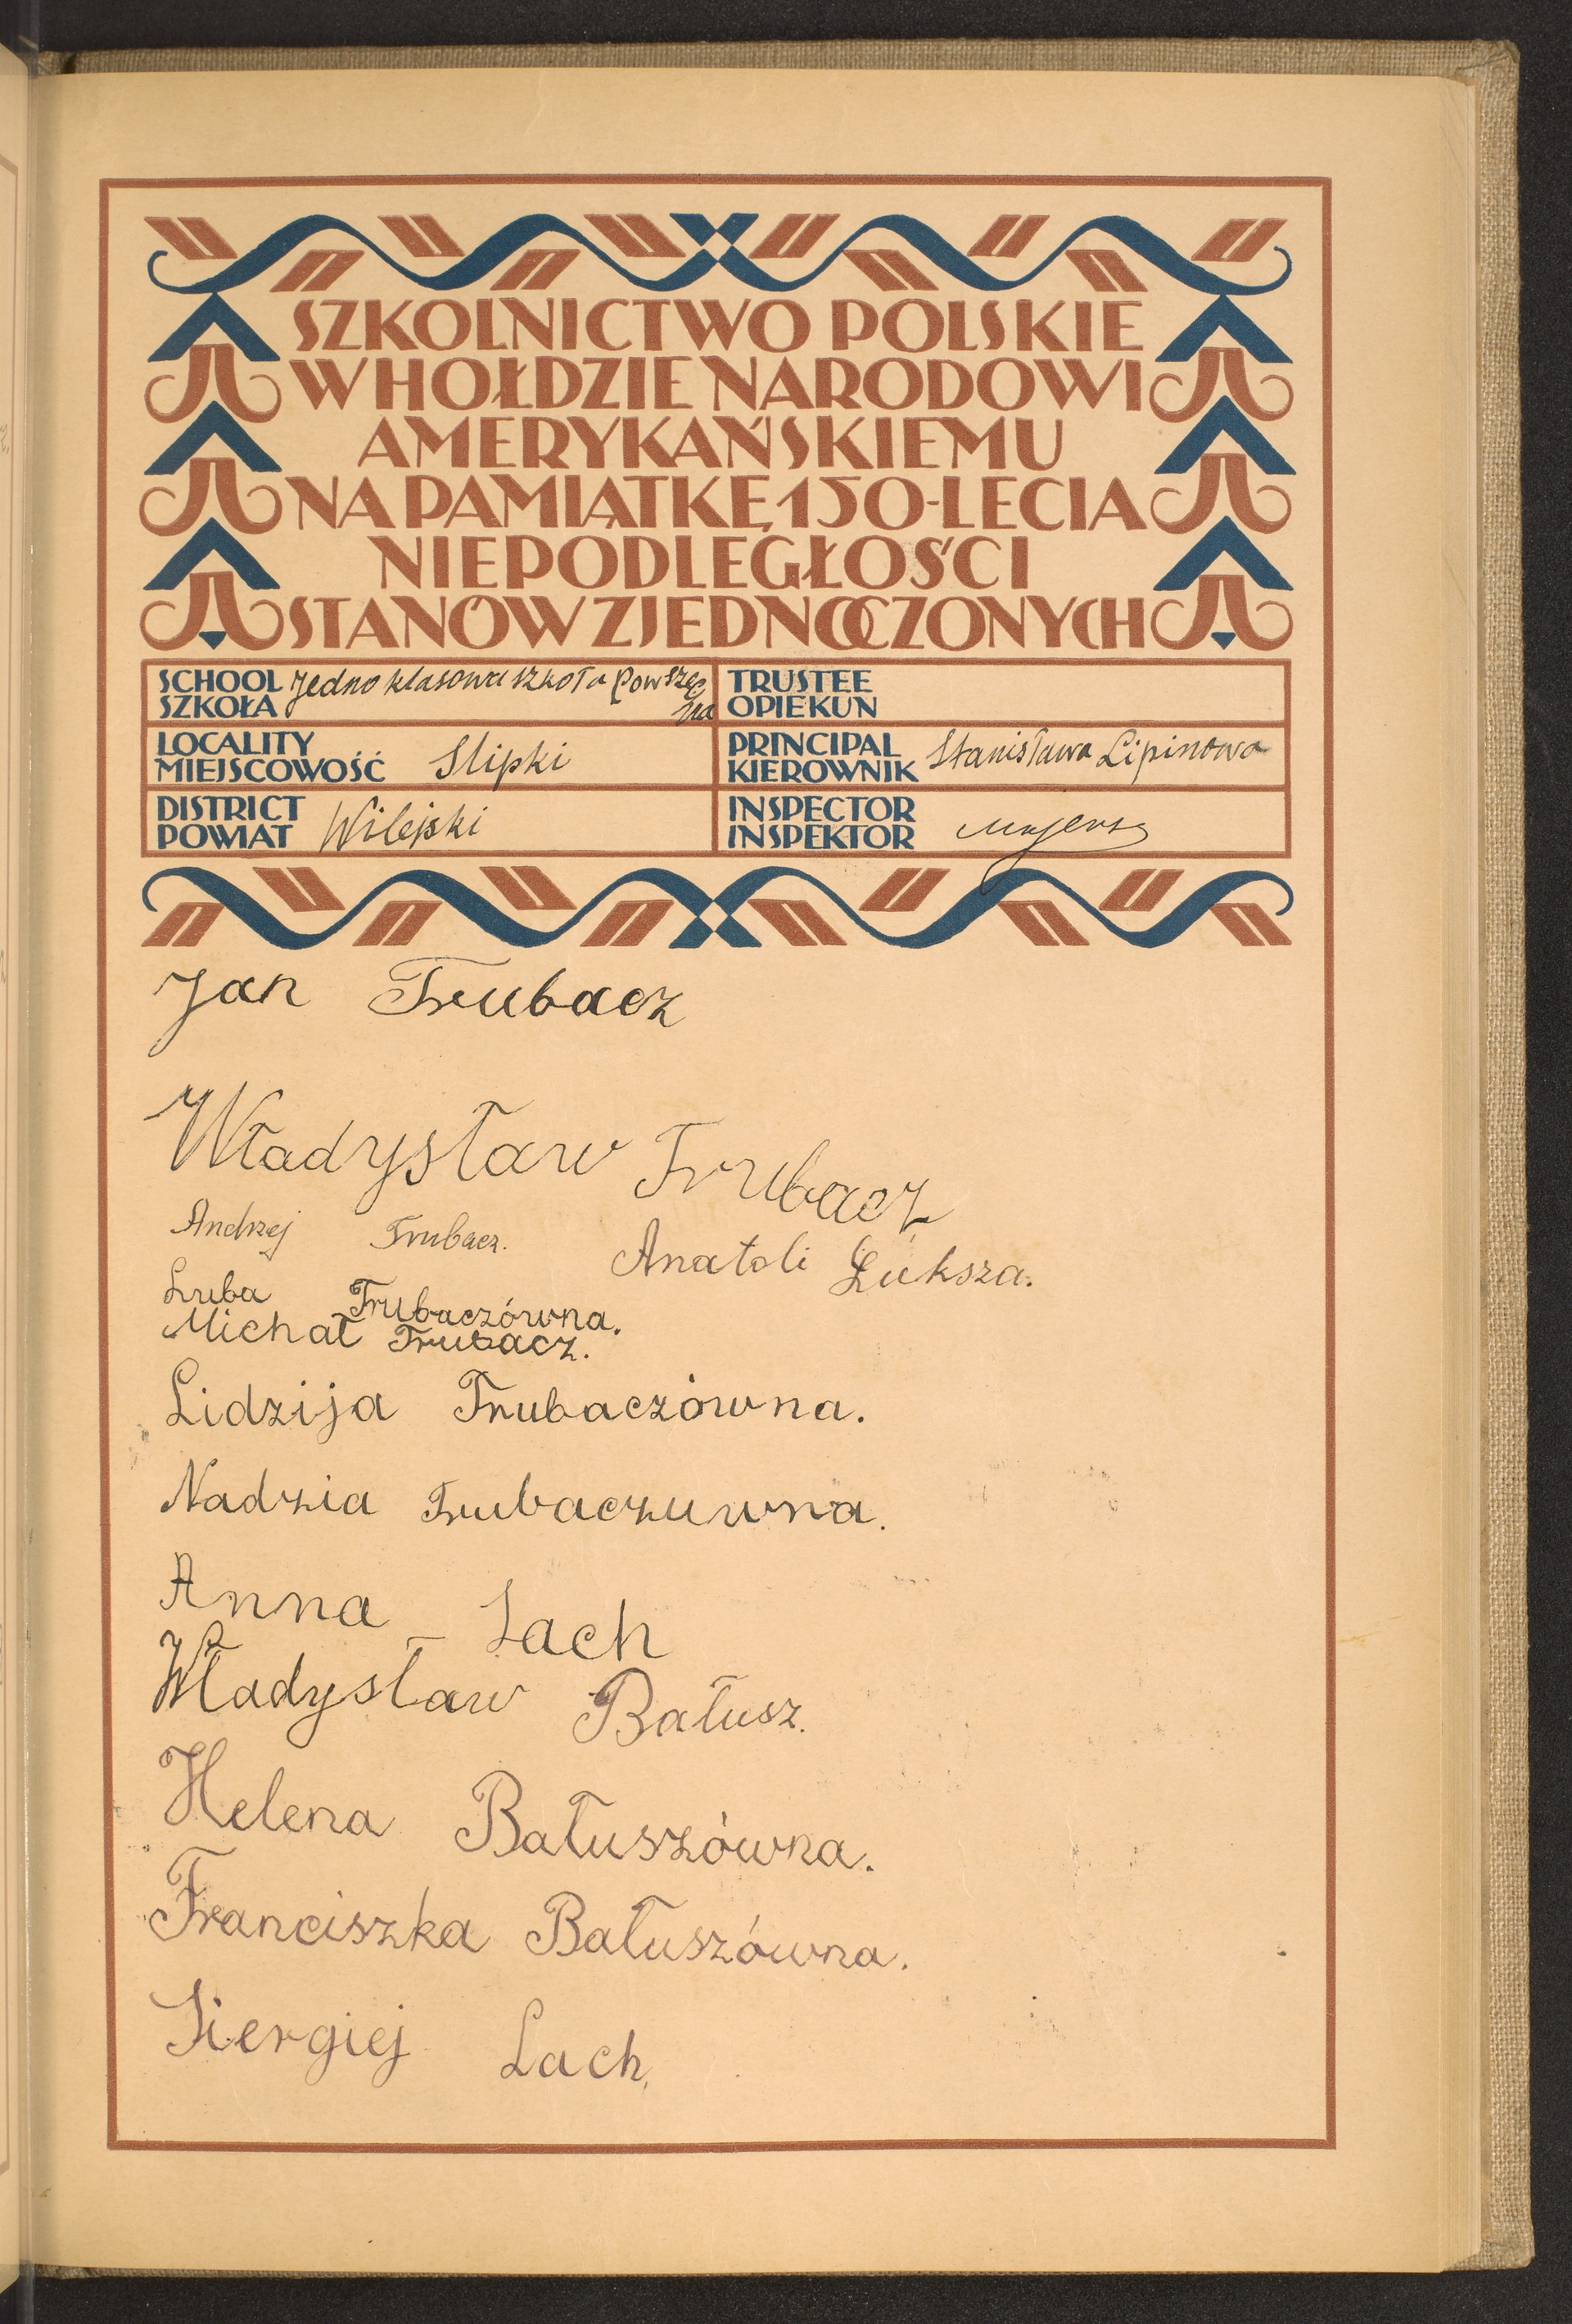 SZKOLNICTWO POLSKIE
W HOŁDZIE NARODOWI
AMERYKAŃSKIEMU
NA PAMIĄTKĘ 150-LECIA
NIEPODLEGŁOŚCI
STANÓW ZJEDNOCZONYCH
SCHOOL
SZKOŁA
Jedno klasowa szkoła powszec
na
TRUSTEE
OPIEKUN
LOCALITY
MIEJSCOWOŚĆ
Slipki
PRINCIPAL
KIEROWNIK
Stanisława Lipinowa
DISTRICT
POWIAT
Wilejski
INSPECTOR
INSPEKTOR
Jan Trubacz
Władysław Trubacz
Andrzej Trubacz.
Anatoli Łuksza.
Luba Trubaczówna.
Michał Trubacz.
Lidzija Trubaczówna.
Nadzia Trubaczuwna.
Anna Lach
Władysław Bałusz.
Helena Bałuszówna.
Franciszka Bałuszówna.
Siergiej Lach.